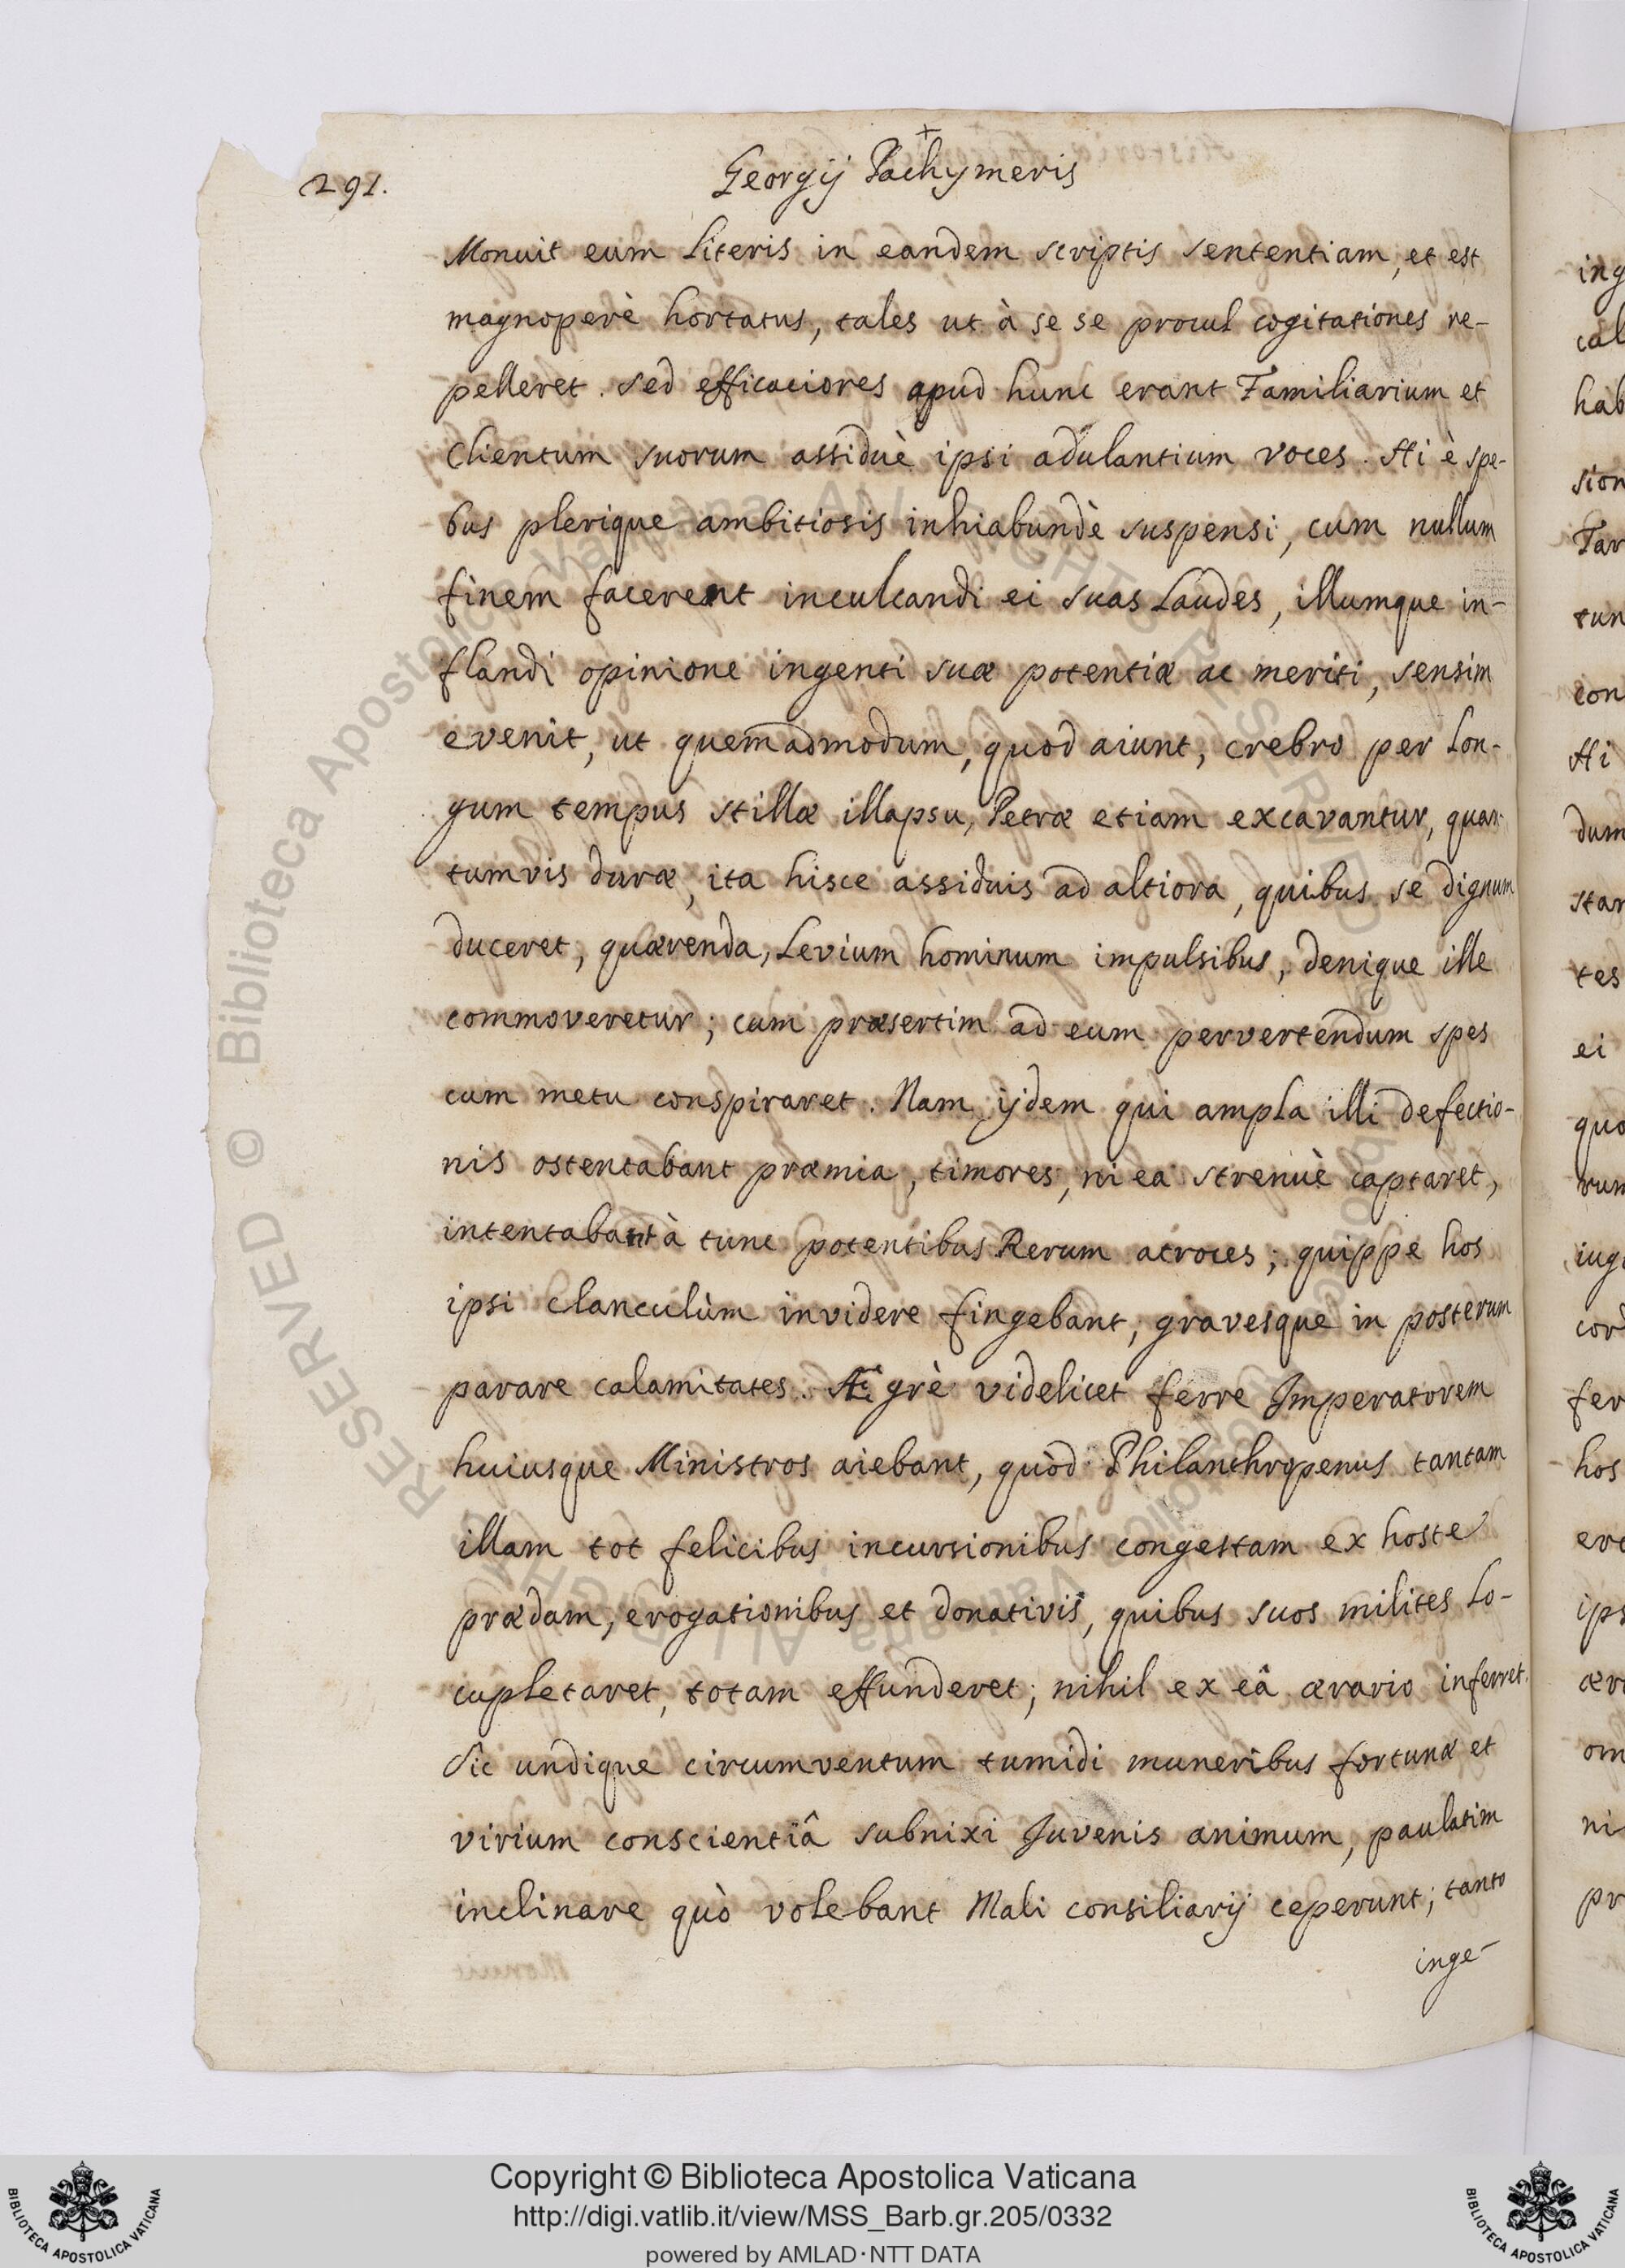 291.
Georgij Pachymeris
Monuit eum Literis in eandem scriptis sententiam, et est
magnoperè hortatus, tales ut à se se procul cogitationes re-
pelleret. Sed efficaciores apud hunc erant Familiarium et
Clientum suorum assiduè ipsi adulantium voces. Hi è spe-
bus plerique ambitiosis inhiabundè suspensi, cum nullum
finem facerent inculcandi ei suas Laudes, illumque in-
flandi opinione ingenti suæ potentiæ ac meriti, sensim
evenit, ut quemadmodum, quod aiunt, crebro per Lon-
gum tempus stillæ illapsu, Petræ etiam excavantur, quan-
tumvis duræ, ita hisce assiduis ad altiora, quibus se dignum
duceret, quærenda, Levium hominum impulsibus, denique ille
commoveretur; cum præsertim ad eum pervertendum spes
cum metu conspiraret. Nam ijdem qui ampla illi defectio-
nis ostentabant præmia, timores, ni ea strenuè captaret,
intentabant à tunc potentibus Rerum atroces; quippe hos
ipsi clanculùm invidere fingebant, gravesque in posterum
parare calamitates. Ægrè videlicet ferre Imperatorem
huiusque Ministros aiebant, quòd Philanthropenus tantam
illam tot felicibus incursionibus congestam ex hoste
prædam, erogationibus et donativis, quibus suos milites Lo-
cupletaret, totam effunderet; nihil ex eâ ærario inferret.
Sic undique circumventum tumidi muneribus fortunæ et
virium conscientiâ subnixi Juvenis animum, paulatim
inclinare quò volebant Mali consiliarij ceperunt; tanto
inge-
ing
cal
hab
sion
Tar
tun
con
Hi
dum
star
tes
ei
quo
rum
iug
cor
fer
hos
ere
ips
ær
om
ni
pr
© Biblioteca Apostolica Vaticana ALL RIGHTS RESERVED
Copyright © Biblioteca Apostolica Vaticana
http://digi.vatlib.it/view/MSS_Barb.gr.205/0332
powered by AMLAD·NTT DATA
BIBLIOTECA APOSTOLICA VATICANA
BIBLIOTECA APOSTOLICA VATICANA